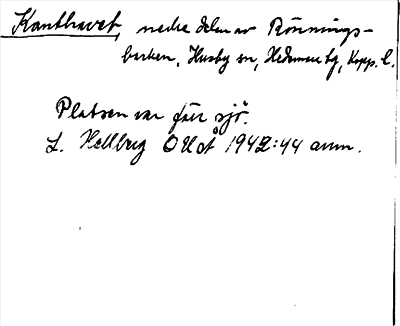 Kanthavet, nedre delen av Rönnings-
backen, Husby sn, Hedemora tg, Kopp. l.
Platsen var förr sjö.
L. Hellberg OUoÅ 1942:44 anm.